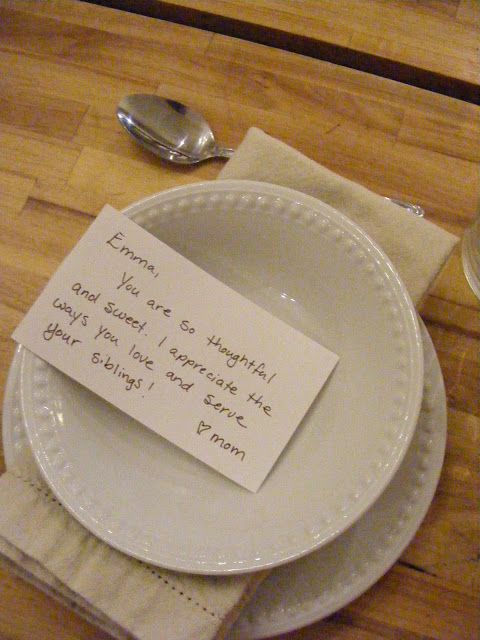 Emma,
You are so thoughtful
and sweet. I appreciate the
ways you love and serve
your siblings!
♡ mom